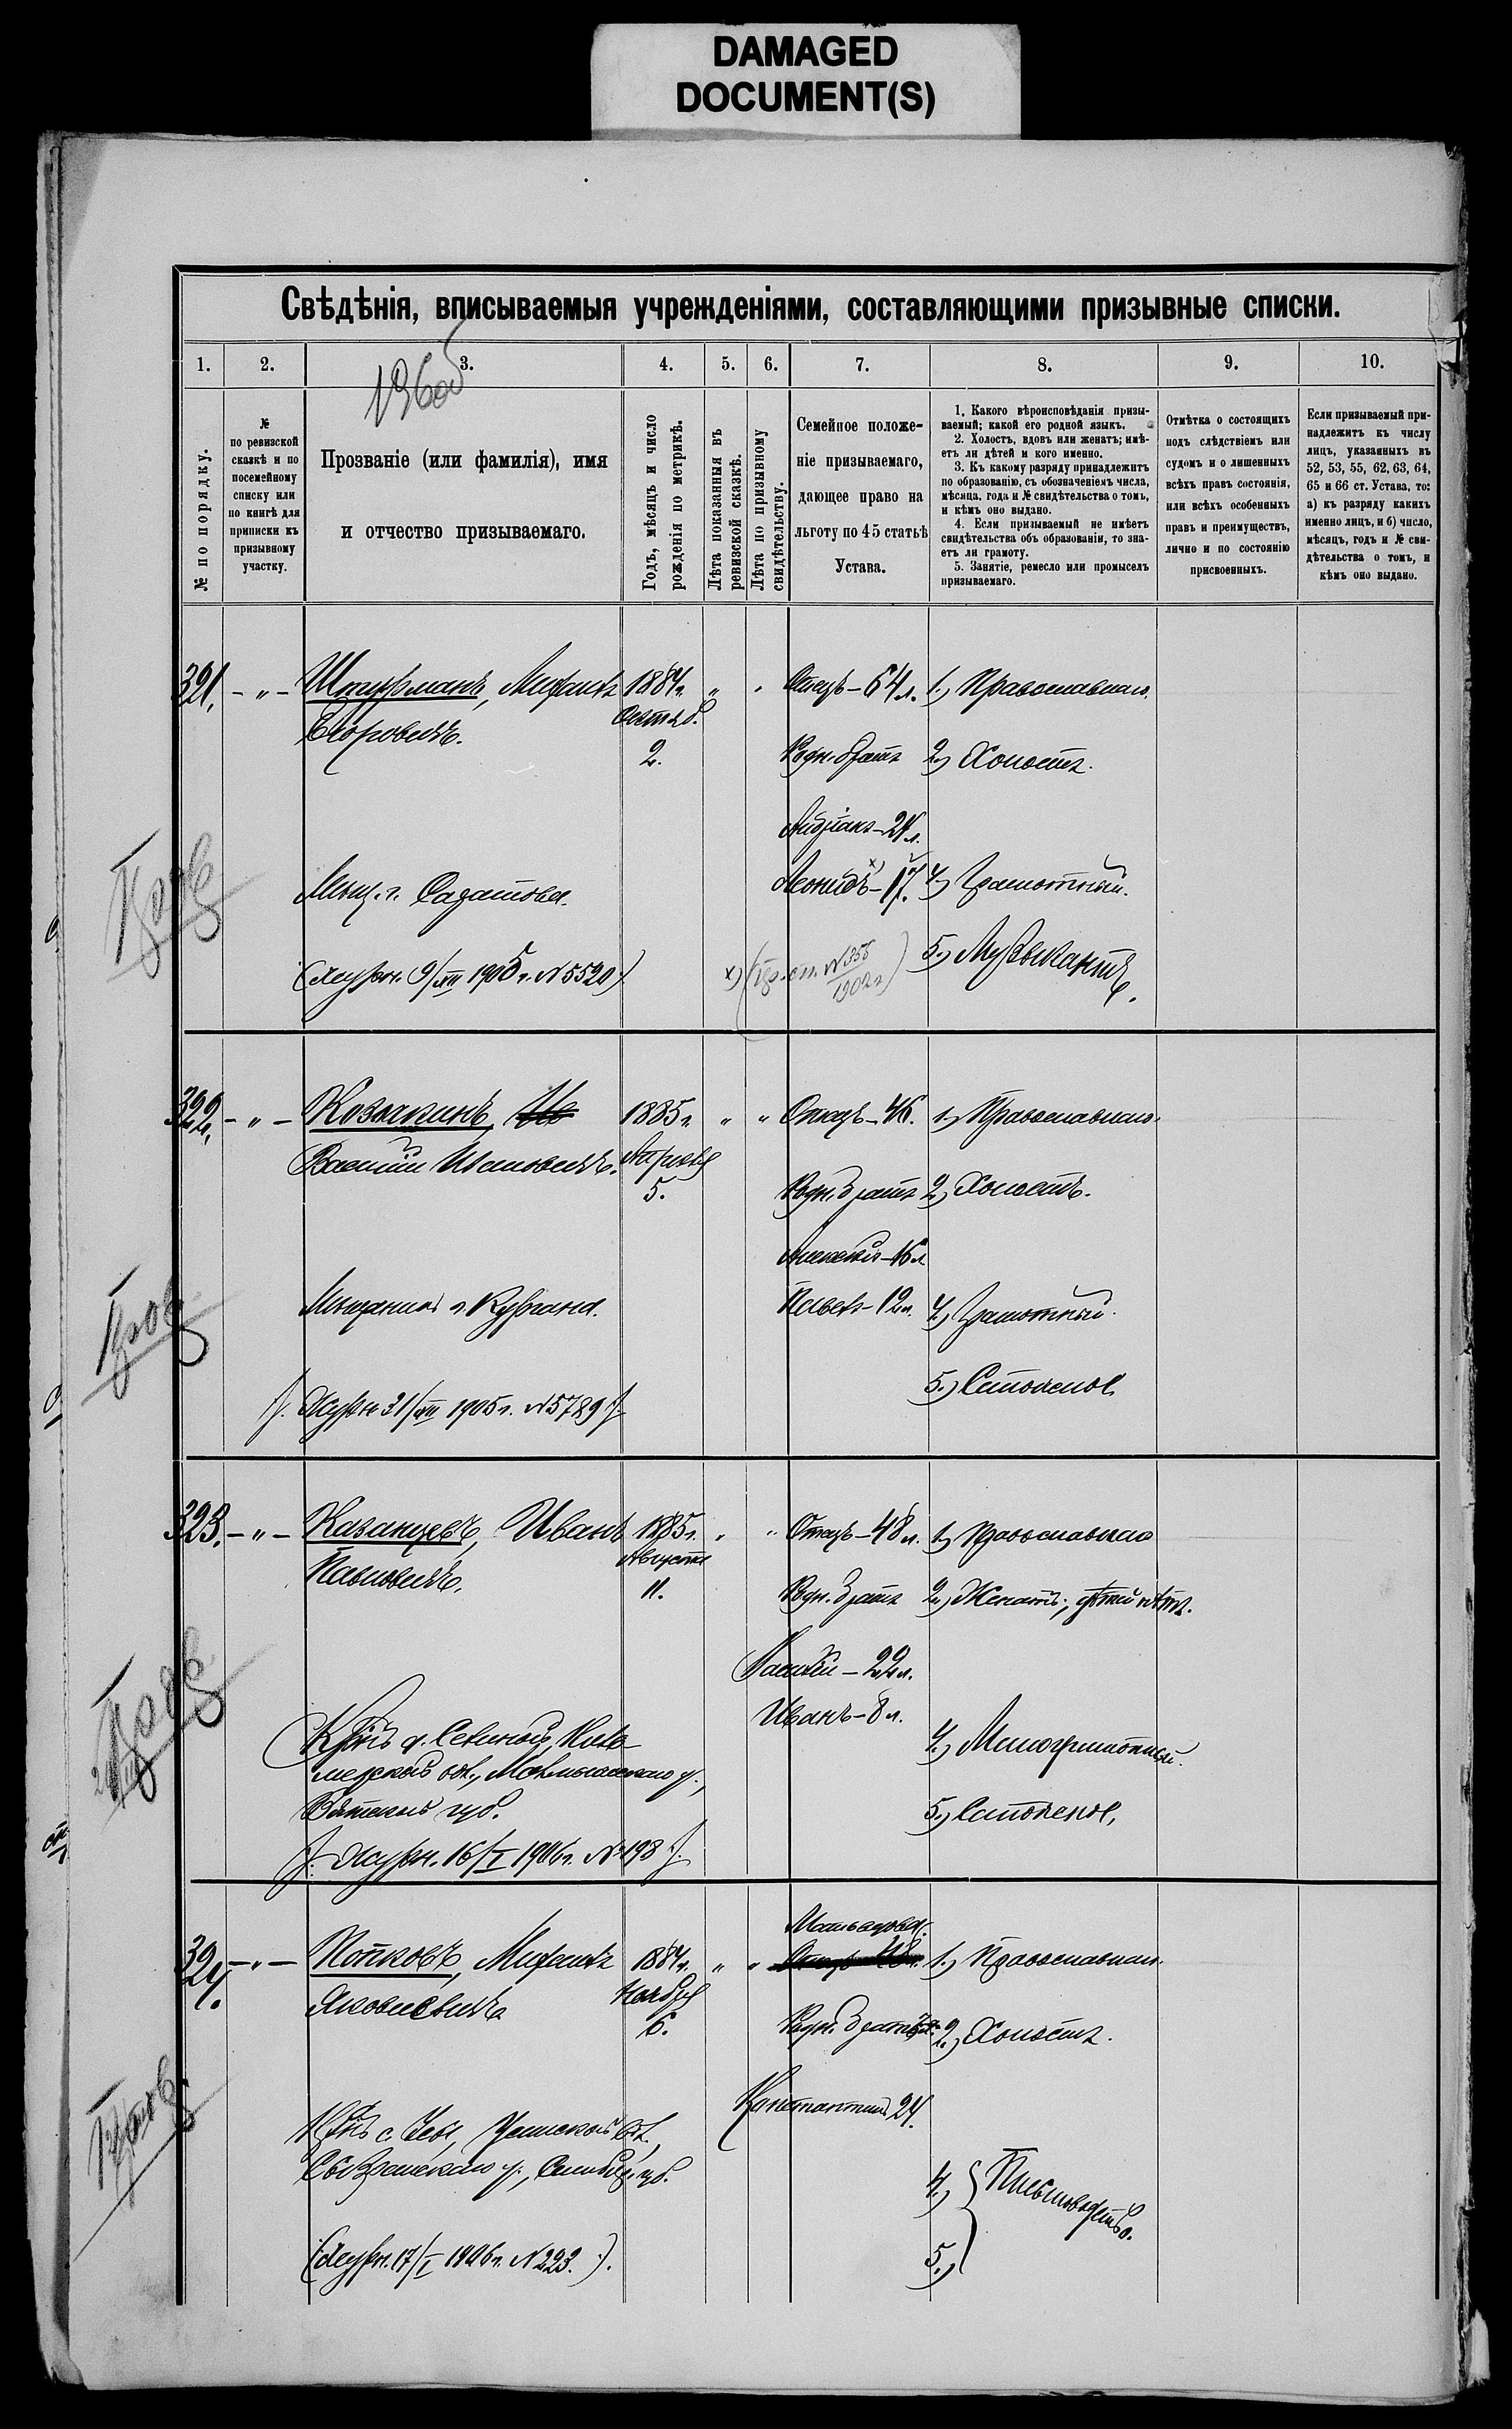 DAMAGED
DOCUMENT(S)
Свѣдѣнія, вписываемыя учрежденіями, составляющими призывные списки.
1. 2. 3. 4. 5. 6. 7. 8. 9. 10.
№ по порядку.
№
по ревизской
сказкѣ и по
посемейному
списку или
по книгѣ для
приписки къ
призывному
участку.
Прозваніе (или фамилія), имя
и отчество призываемаго.
Годъ, мѣсяцъ и число
рожденія по метрикѣ.
Лѣта показанныя въ
ревизской сказкѣ.
Лѣта по призывному
свидѣтельству.
Семейное положе-
ніе призываемаго,
дающее право на
льготу по 45 статьѣ
Устава.
1. Какого вѣроисповѣданія призы-
ваемый; какой его родной языкъ.
2. Холостъ, вдовъ или женатъ; имѣ-
етъ ли дѣтей и кого именно.
3. Къ какому разряду принадлежитъ
по образованію, съ обозначеніемъ числа,
мѣсяца, года и № свидѣтельства о томъ,
и кѣмъ оно выдано.
4. Если призываемый не имѣетъ
свидѣтельства объ образованіи, то зна-
етъ ли грамоту.
5. Занятіе, ремесло или промыселъ
призываемаго.
Отмѣтка о состоящихъ
подъ слѣдствіемъ или
судомъ и о лишенныхъ
всѣхъ правъ состоянія,
или всѣхъ особенныхъ
правъ и преимуществъ,
лично и по состоянію
присвоенныхъ.
Если призываемый при-
надлежитъ къ числу
лицъ, указанныхъ въ
52, 53, 55, 62, 63, 64,
65 и 66 ст. Устава, то:
а) къ разряду какихъ
именно лицъ, и б) число,
мѣсяцъ, годъ и № сви-
дѣтельства о томъ, и
кѣмъ оно выдано.
321. - " - Штурманъ, Михаилъ 1884г. " " Отецъ - 64 л. 1.) Православнаго.
Егоровичъ. Октяб.
2. Родн. братъ 2.) Холостъ.
Андріанъ - 24 л.
Мѣщ. г. Саратова. Леонидъ х) - 17. 4.) Грамотный.
(журн. 9/XII 1905 г. N 5520). 5.) Музыкантъ.
322. - " - Козочкинъ, 1885г. " " Отецъ - 46. 1.) Православнаго.
Василій Ивановичъ. Апрѣля
5. Родн. братъ 2.) Холостъ.
Алексѣй - 16 л.
Мѣщанинъ г. Кургана. Павелъ - 12 л. 4.) Грамотный.
5.) Слоченов
Журн 31/XII 1905 г. N 5789
323. - " - Казанцевъ, Иванъ 1885г. " " Отецъ - 48 л. 1.) Православнаго
Павловичъ. Августа
11. Родн. братъ 2.) Женатъ; дѣтей нѣтъ.
Василій - 22 л.
Иванъ - 8 л.
Кр-нъ д. Кильмезской вол., Малмыжскаго у., 4.) Малограмотный.
Вятской губ.
Журн. 16/I 1906 г. № 198
324. - " - Попковъ, Михаилъ 1884г. " " Мать вдова. 1.) Православнаго.
Яковлевичъ Ноября
6. Родн. братъ 2.) Холостъ.
Константинъ 24.
Кр-нъ с. Усинской вол.,
Сызранскаго у., Симбир. губ.
4.) 5.) Письмоводство.
(журн. 17/I 1906 г. N 223.).